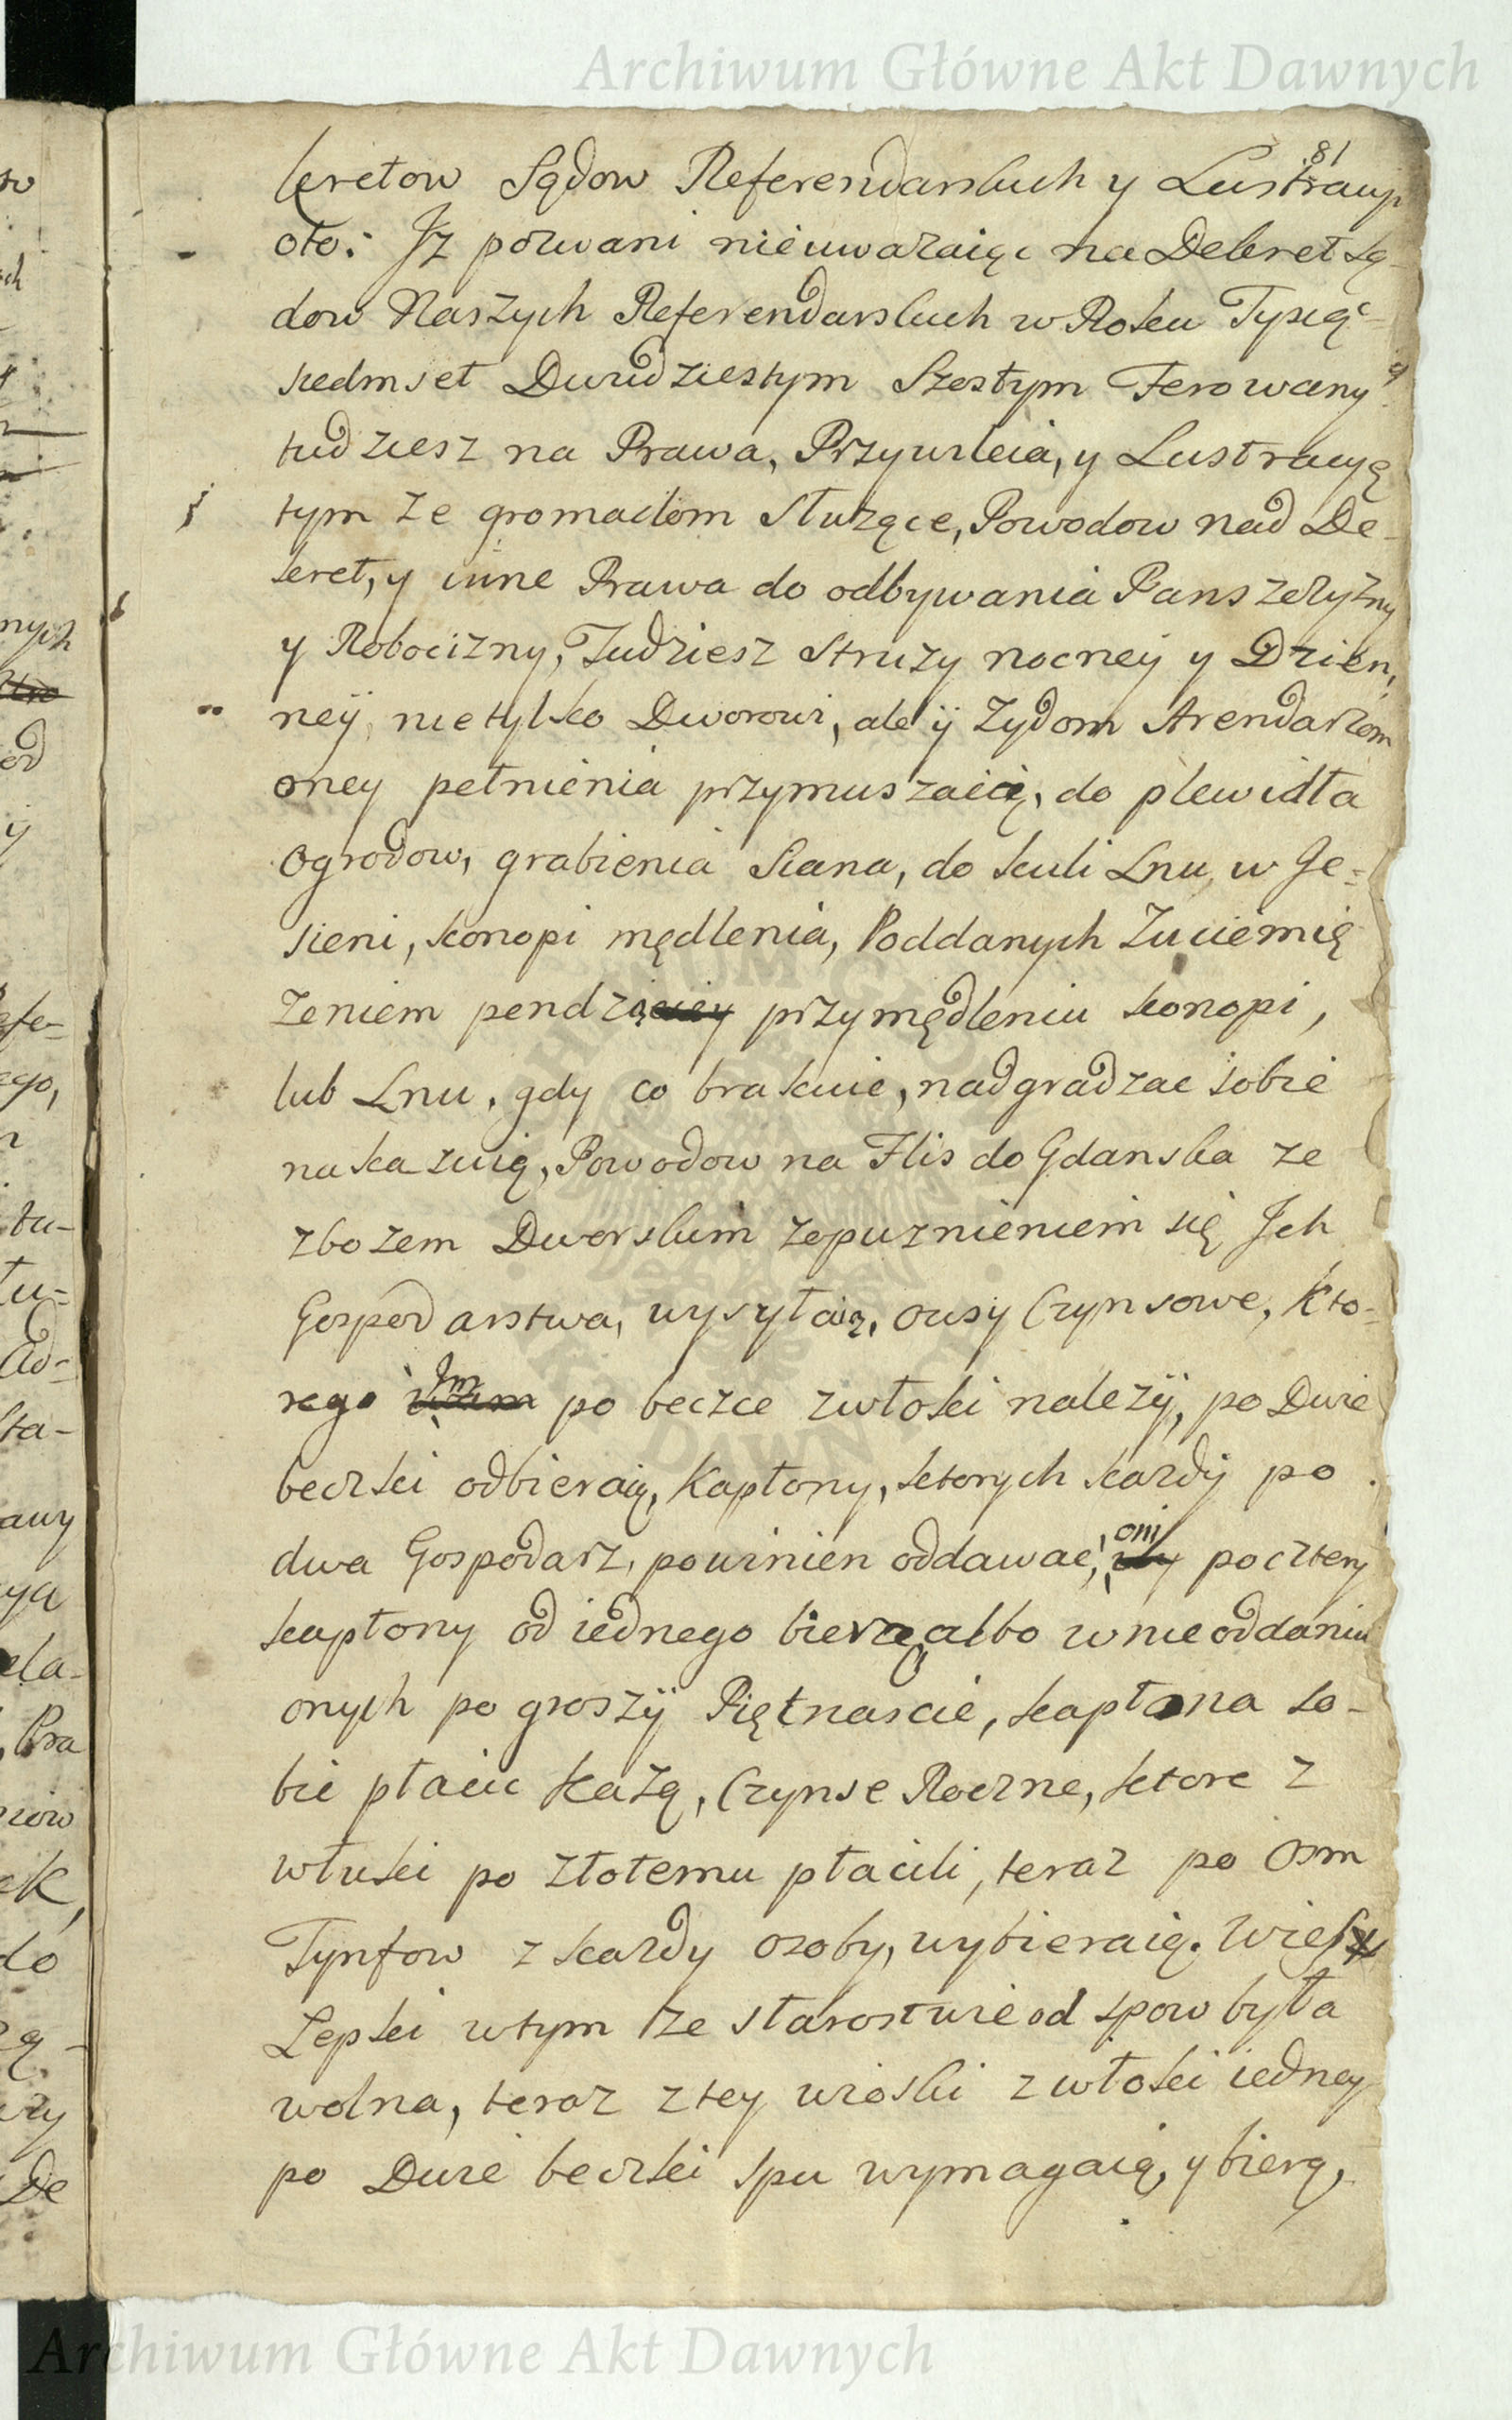 Archiwum Główne Akt Dawnych
81
kretow Sądow Referendarskich y Lustracyi
oto: Jz pozwani nieuwazaiąc na Dekret Są-
dow Naszych Referendarskich w Roku Tysiąc-
siedmset Dwudziestym Szostym Ferowany
tudziesz na Prawa, Przywileia, y Lustracyę
tym ze gromadom służące, Powodow nad De-
kret, y inne Prawa do odbywania Panszczyzny
y Robocizny, Tudziesz Struzy nocney y Dzien,
ney, nie tylko Dworowi, ale ÿ Zydom Arendarzom
oney pełnienia przymuszaią, do plewidła
Ogrodow, grabienia Siana, do kuli Lnu, w Je=
sieni, konopi mędlenia, Poddanych Zuciemię
zeniem pendzą przymędleniu konopi,
lub Lnu, gdy co brakuie, nadgradzac sobie
nakazuią, Powodow na Flis do Gdanska ze
zbozem Dworskim zopuznieniem się Jch
Gospodarstwa, wysyłaią, owsy Czynsowe, Kto-
rego Jm po beczce zwłoki nalezÿ, po Dwie
beczki odbieraią, Kapłony, ktorych kazdÿ po
dwa Gospodarz, powinien oddawac, oni po cztery
kapłony od iednego bierą, albo w nieoddaniu
onych po groszÿ Piętnascie, kapłona so-
bie płacic każą, Czynse Roczne, ktore z
włuki po złotemu płacili, teraz po Osm
Tynfow z kazdy osoby, wybieraią. Wies
Lepki wtym ze starostwie od spow była
wolna, teraz z tey wioski z włoki iedney
po Dwie beczki spu wymagaią, y bierą,
Archiwum Główne Akt Dawnych